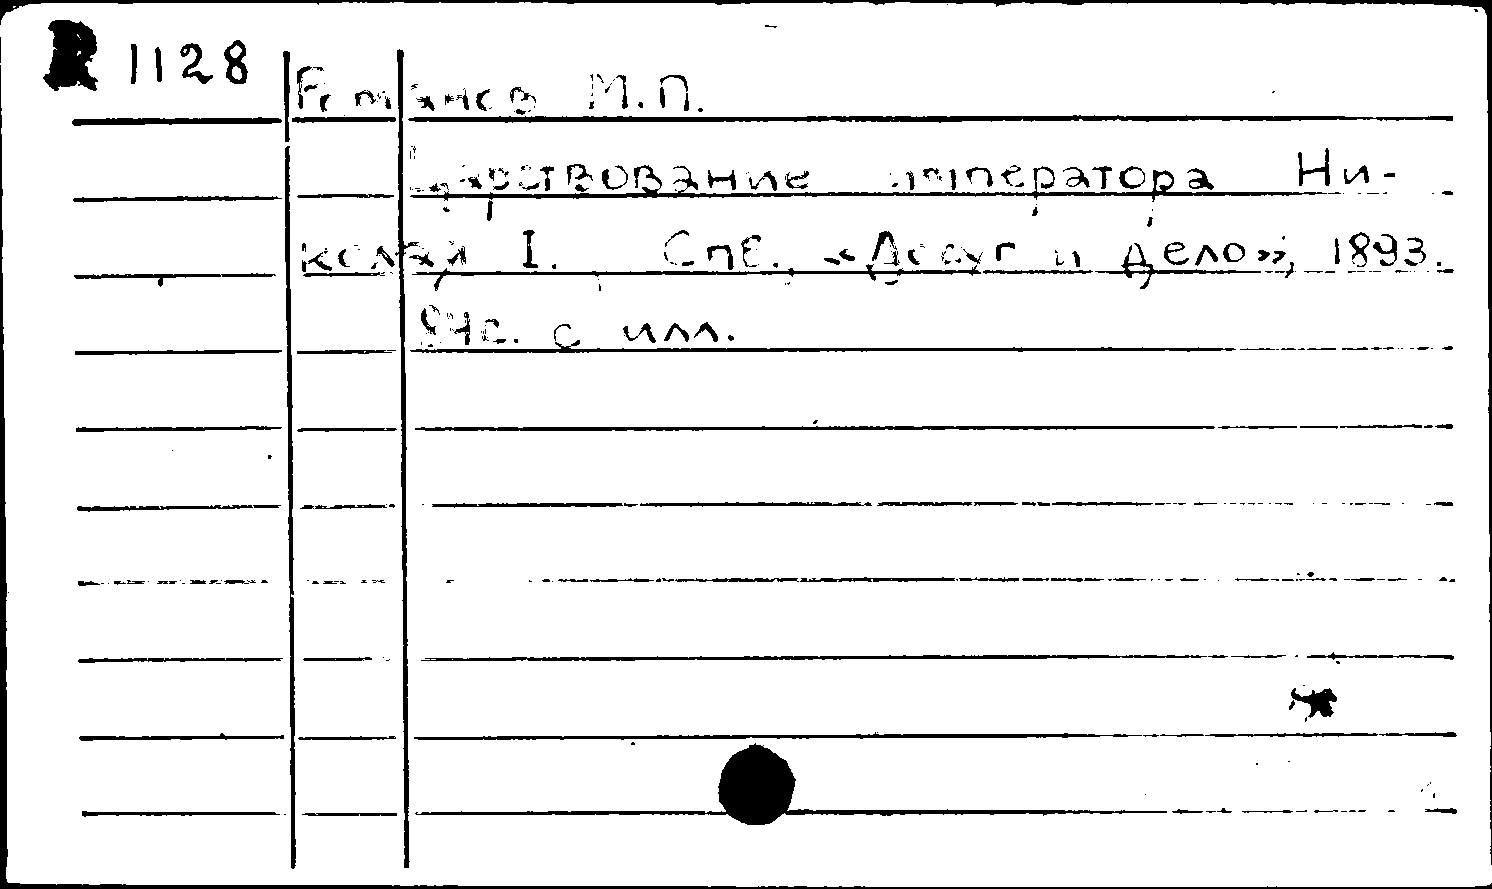 R 1128
Романов М.П.
Царствование императора Ни-
колая I. Спб., «Досуг и дело», 1893.
94с. с илл.